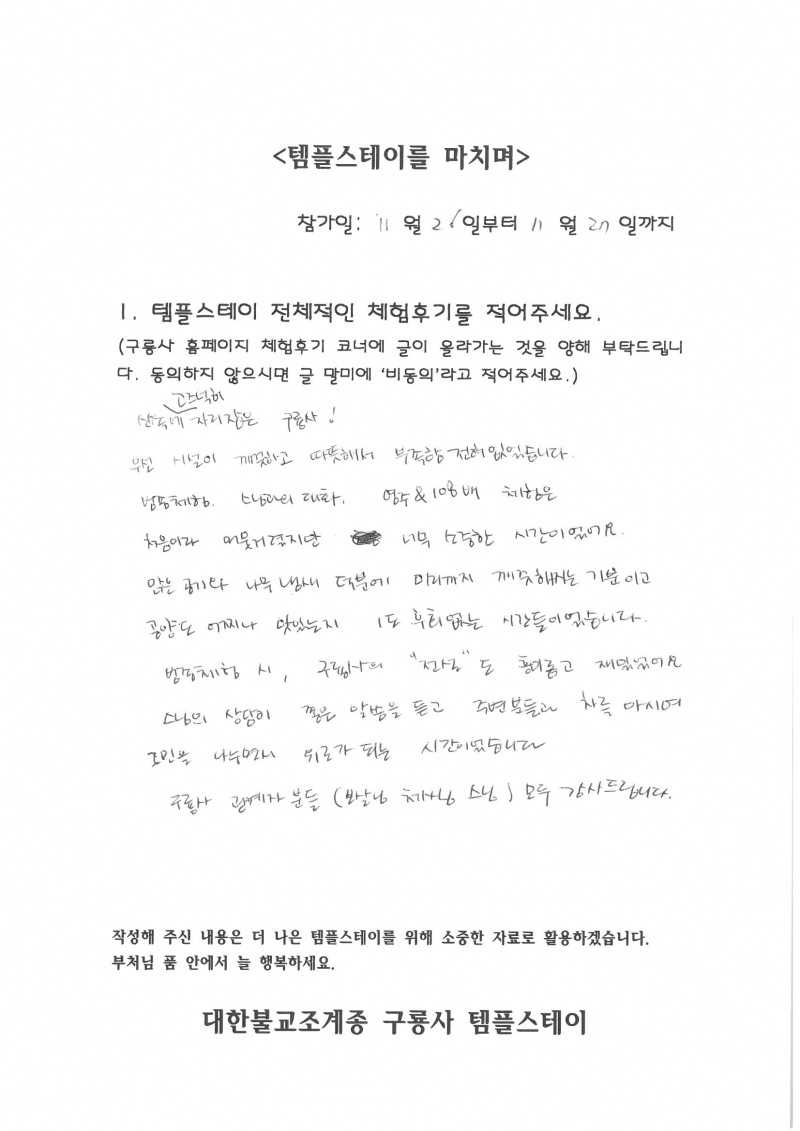 <템플스테이를 마치며>
참가일: 11 월 26일부터 11 월 27 일까지
1. 템플스테이 전체적인 체험후기를 적어주세요.
(구룡사 홈페이지 체험후기 코너에 글이 올라가는 것을 양해 부탁드립니
다. 동의하지 않으시면 글 말미에 '비동의'라고 적어주세요.)
고즈넉히
산속에 자리잡은 구룡사!
우선 시설이 깨끗하고 따뜻해서 부족함 전혀없었습니다.
범종체험. 스님과의 대화. 염주&108배 체험은
처음이라 머뭇거렸지만 너무 소중한 시간이었어요.
맑은 공기와 나무 냄새 덕분에 머리까지 깨끗해지는 기분이고
공양도 어찌나 맛있는지 1도 후회없는 시간들이었습니다.
범종체험 시, 구룡사의 "전설"도 흥미롭고 재밌었어요
스님의 상담이 말씀을 듣고 주변분들과 차를 마시며
고민을 나누면서 위로가 되는 시간이었습니다
구룡사 관계자 분들 (보살님 처사님 스님) 모두 감사드립니다.
작성해 주신 내용은 더 나은 템플스테이를 위해 소중한 자료로 활용하겠습니다.
부처님 품 안에서 늘 행복하세요.
대한불교조계종 구룡사 템플스테이